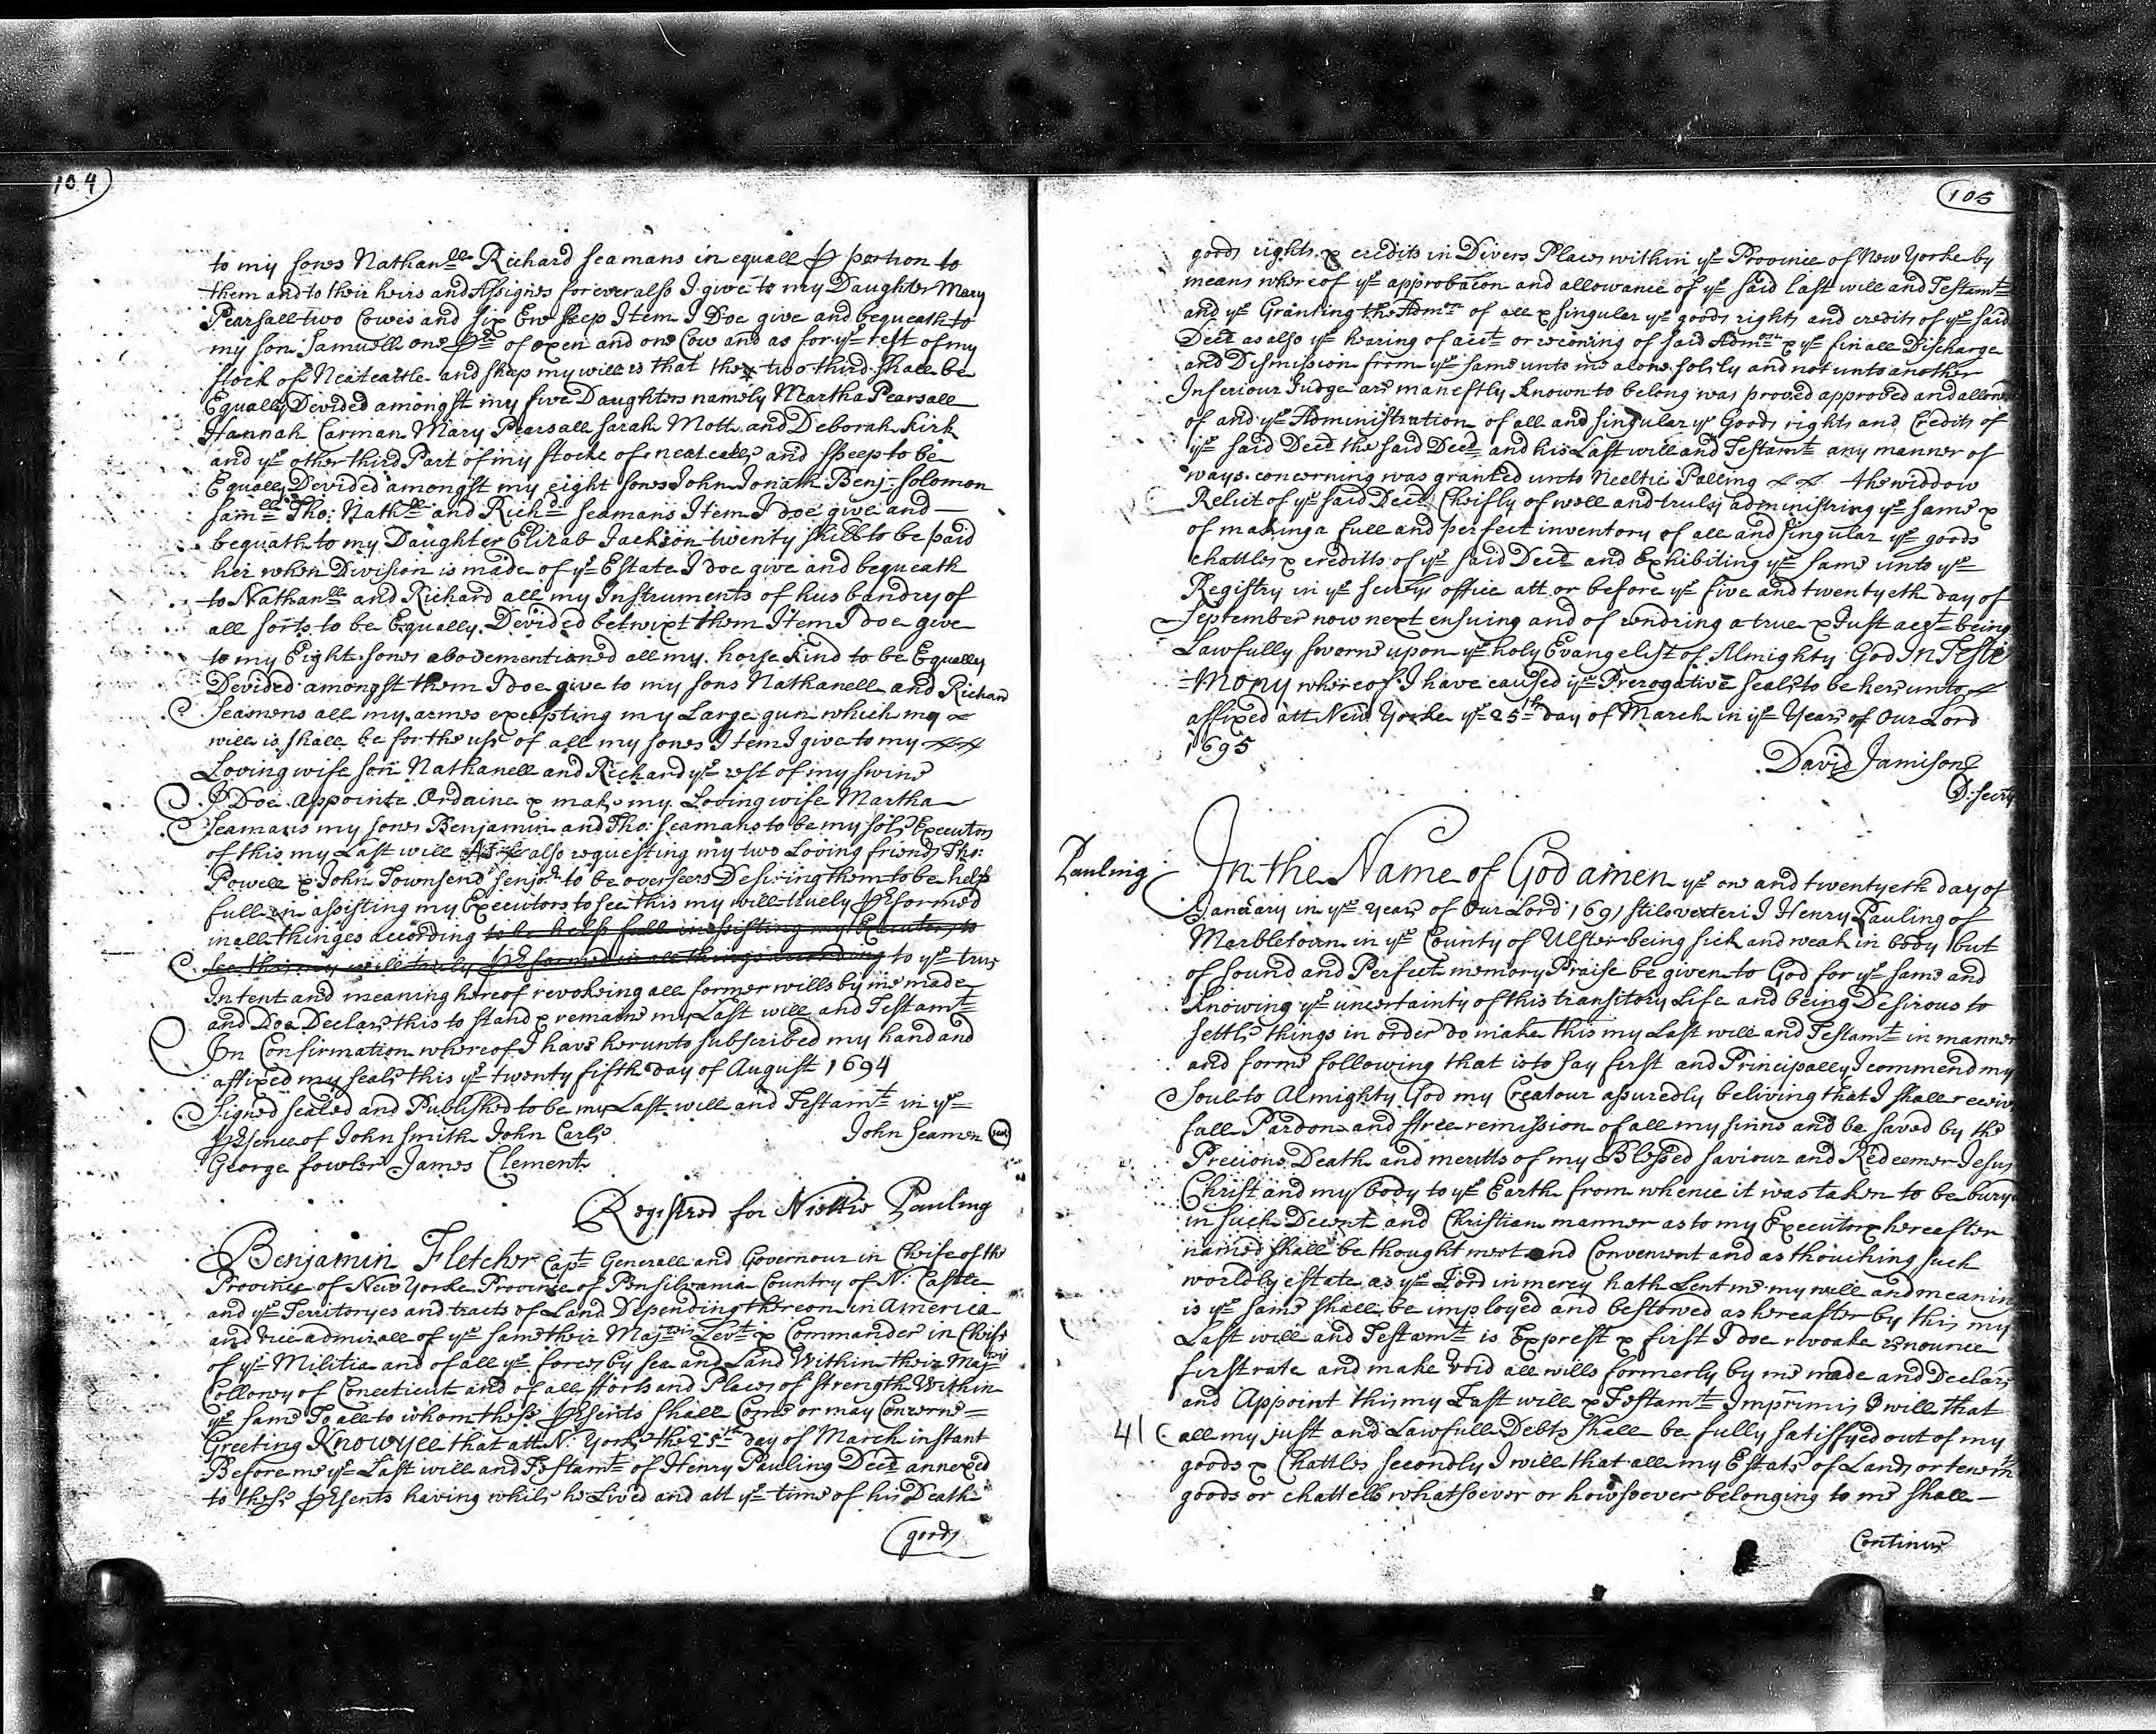 104
to my sones Nathanll Richard seamans in equall p portion to
them and to their heirs and Assignes for ever also I give to my Daughter Mary
Pearsall two Cowes and six Ew sheep Item I Doe give and bequeath to
my son Samuell one pr of oxen and one Cow and as for ye rest of my
stock of Neat cattle and shep my will is that the two third shall be
Equally Devided amongst my five Daughters namely Martha Pearsall
Hannah Carman Mary Pearsall Sarah Mott and Deborah Kirk
and ye other third Part of my stocke of neat catle and sheep to be
Equally Devided amongst my eight sones John Jonath: Benj: Solomon
Samll Tho: Nathll and Richd seamans Item I doe give and
bequath to my Daughter Elizab Jackson twenty shills to be paid
her when Division is made of ye Estate I doe give and bequeath
to Nathanll and Richard all my Instruments of husbandry of
all sorts to be Equally Devided betwixt them Item I doe give
to my Eight sones abovementioned all my horse kind to be Equally
Devided amongst them I doe give to my sons Nathanell and Richar
Seamens all my armes excepting my Large gun which my
will is shall be for the use of all my sones Item I give to my
Loving wife son Nathanell and Richard ye rest of my swine
I Doe Appointe Ordaine & make my Loving wife Martha
Seamans my sones Benjamin and Tho: Seamans to be my sole Executors
of this my Last will also requesting my two Loving friends Tho:
Powell & John Townsend senjor to be overseers Desiring them to be help
full in assisting my Executors to see this my will truely pformed
in all thinges according to be help full in assisting my Executors to
see this my will truely pformed in all things according to ye true
Intent and meaning hereof revokeing all former wills by me made
and Doe Declare this to stand & remaine my Last will and Testamt
In Confirmation whereof I have herunto subscribed my hand and
affixed my seale this ye twenty fifth day of August 1694
Signed sealed and Published to be my Last will and Testamt in ye
psence of John Smith John Carle
John Seamen seal
George fowler James Clement
Registred for Nieltie Pauling
Benjamin Fletcher Capt Generall and Governour in Cheife of the
Province of New Yorke Province of Pensilvania Country of N: Castle
and ye Territoryes and tracts of Land Depending thereon in America
and vice admirall of ye same their Majties Levt & Commander in Chife
of ye Militia and of all ye forces by sea and Land Within their Majties
Collony of Conecticut and of all fforts and Places of strength Within
ye same To all to whom these psents shall Come or may Concerne
Greeting Know yee that att N: Yorke the 25th day of March instant
Before me ye Last will and Testamt of Henry Pauling Decd annexed
to these psents having while he Lived and att ye time of his Death
goods
105
goods rights & credits in Divers Places within ye Province of New Yorke by
means whereof ye approbacon and allowance of ye said last will and Testamt
and ye Granting the Admon of all & singular ye goods rights and credits of ye said
Decd as also ye hearing of acct or reconing of said Admon & ye finall Discharge
and Dismission from ye same unto me alone solely and not unto another
Inferiour Judge are manefstly known to belong was proved approved and allowed
of and ye Administration of all and singular ye Goods rights and Credits of
ye said Decd the said Decd and his Last will and Testamt any manner of
ways concerning was granted unto Neeltie Palling the widdow
Relict of ye said Decd Cheifly of well and truly administring ye same &
of making a full and perfect inventory of all and singular ye goods
chattles & creditts of ye said Decd and Exhibiting ye same unto ye
Registry in ye secrys office att or before ye five and twentyeth day of
September now next ensuing and of rendring a true & Just acct being
Lawfully sworne upon ye holy Evangelist of Almighty God In Testi
=Mony whereof I have caused ye Prerogative seale to be hereunto
affixed att New Yorke ye 25th day of March in ye Year of Our Lord
1695
David Jamison
D: secry
Pauling
In the Name of God amen ye one and twentyeth day of
January in ye year of Our Lord 1691 stilo vexteri I Henry Pauling of
Marbletown in ye County of Ulster being sick and weak in body but
of sound and Perfect memory Praise be given to God for ye same and
Knowing ye uncertainty of this transitory Life and being Desirous to
settle things in order do make this my Last will and Testamt in manner
and forme following that is to say first and Principally I commend my
Soul to Almighty God my Creatour assuredly beliving that I shall receive
full Pardon and ffree remission of all my sinns and be saved by the
Precious Death and meritts of my Blessed saviour and Redeemer Jesus
Christ and my body to ye Earth from whence it was taken to be bury
in such Decent and Christian manner as to my Executor hereafter
named shall be thought meet and Convenient and as thouching such
worldly estate as ye Lord in mercy hath Lent me my will and meaning
is ye same shall be imployed and bestowed as hereafter by this my
Last will and Testamt is Exprest & first I doe revoake renounce
firstrate and make void all wills formerly by me made and Declare
and Appoint this my Last will & Testamt Imprimis I will that
41 all my just and Lawfull Debts shall be fully satisfyed out of my
goods & Chattles secondly I will that all my Estate of Lands or tenemts
goods or chattells whatsoever or howsoever belonging to me shall
Continue